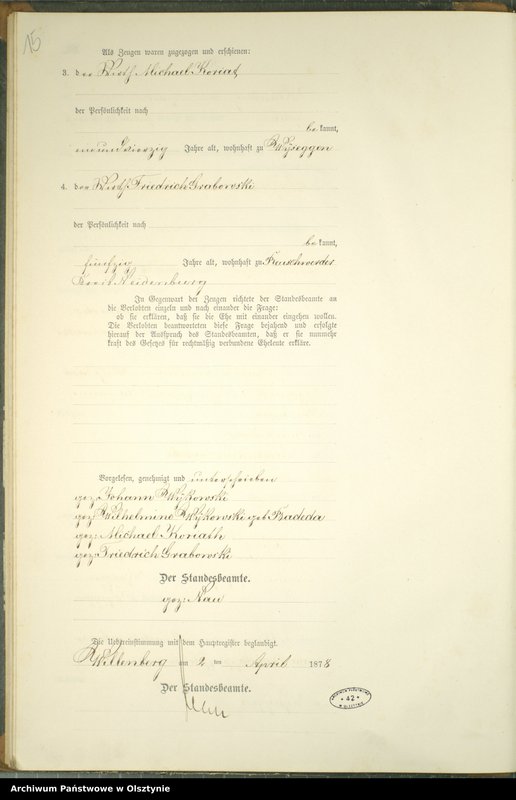 15
Als Zeugen waren zugezogen und erschienen:
3. der Wirth Michael Koriath
der Persönlichkeit nach
bekannt,
neunundvierzig Jahre alt, wohnhaft zu Wyseggen
4. der Wirth Friedrich Grabowski
der Persönlichkeit nach
bekannt,
fünfzig Jahre alt, wohnhaft zu
Kreis Neidenburg
In Gegenwart der Zeugen richtete der Standesbeamte an
die Verlobten einzeln und nach einander die Frage:
ob sie erklären, daß sie die Ehe mit einander eingehen wollen.
Die Verlobten beantworteten diese Frage bejahend und erfolgte
hierauf der Ausspruch des Standesbeamten, daß er sie nunmehr
kraft des Gesetzes für rechtmäßig verbundene Eheleute erkläre.
Vorgelesen, genehmigt und unterschrieben
gez: Johann Wykowski
gez: Wilhelmine Wykowski geb
gez: Michael Koriath
gez: Friedrich Grabowski
Der Standesbeamte.
gez: Nau
Die Uebereinstimmung mit dem Hauptregister beglaubigt.
Willenberg am 2 ten April 1878
Der Standesbeamte.
Nau
* 42 *
Archiwum Państwowe w Olsztynie